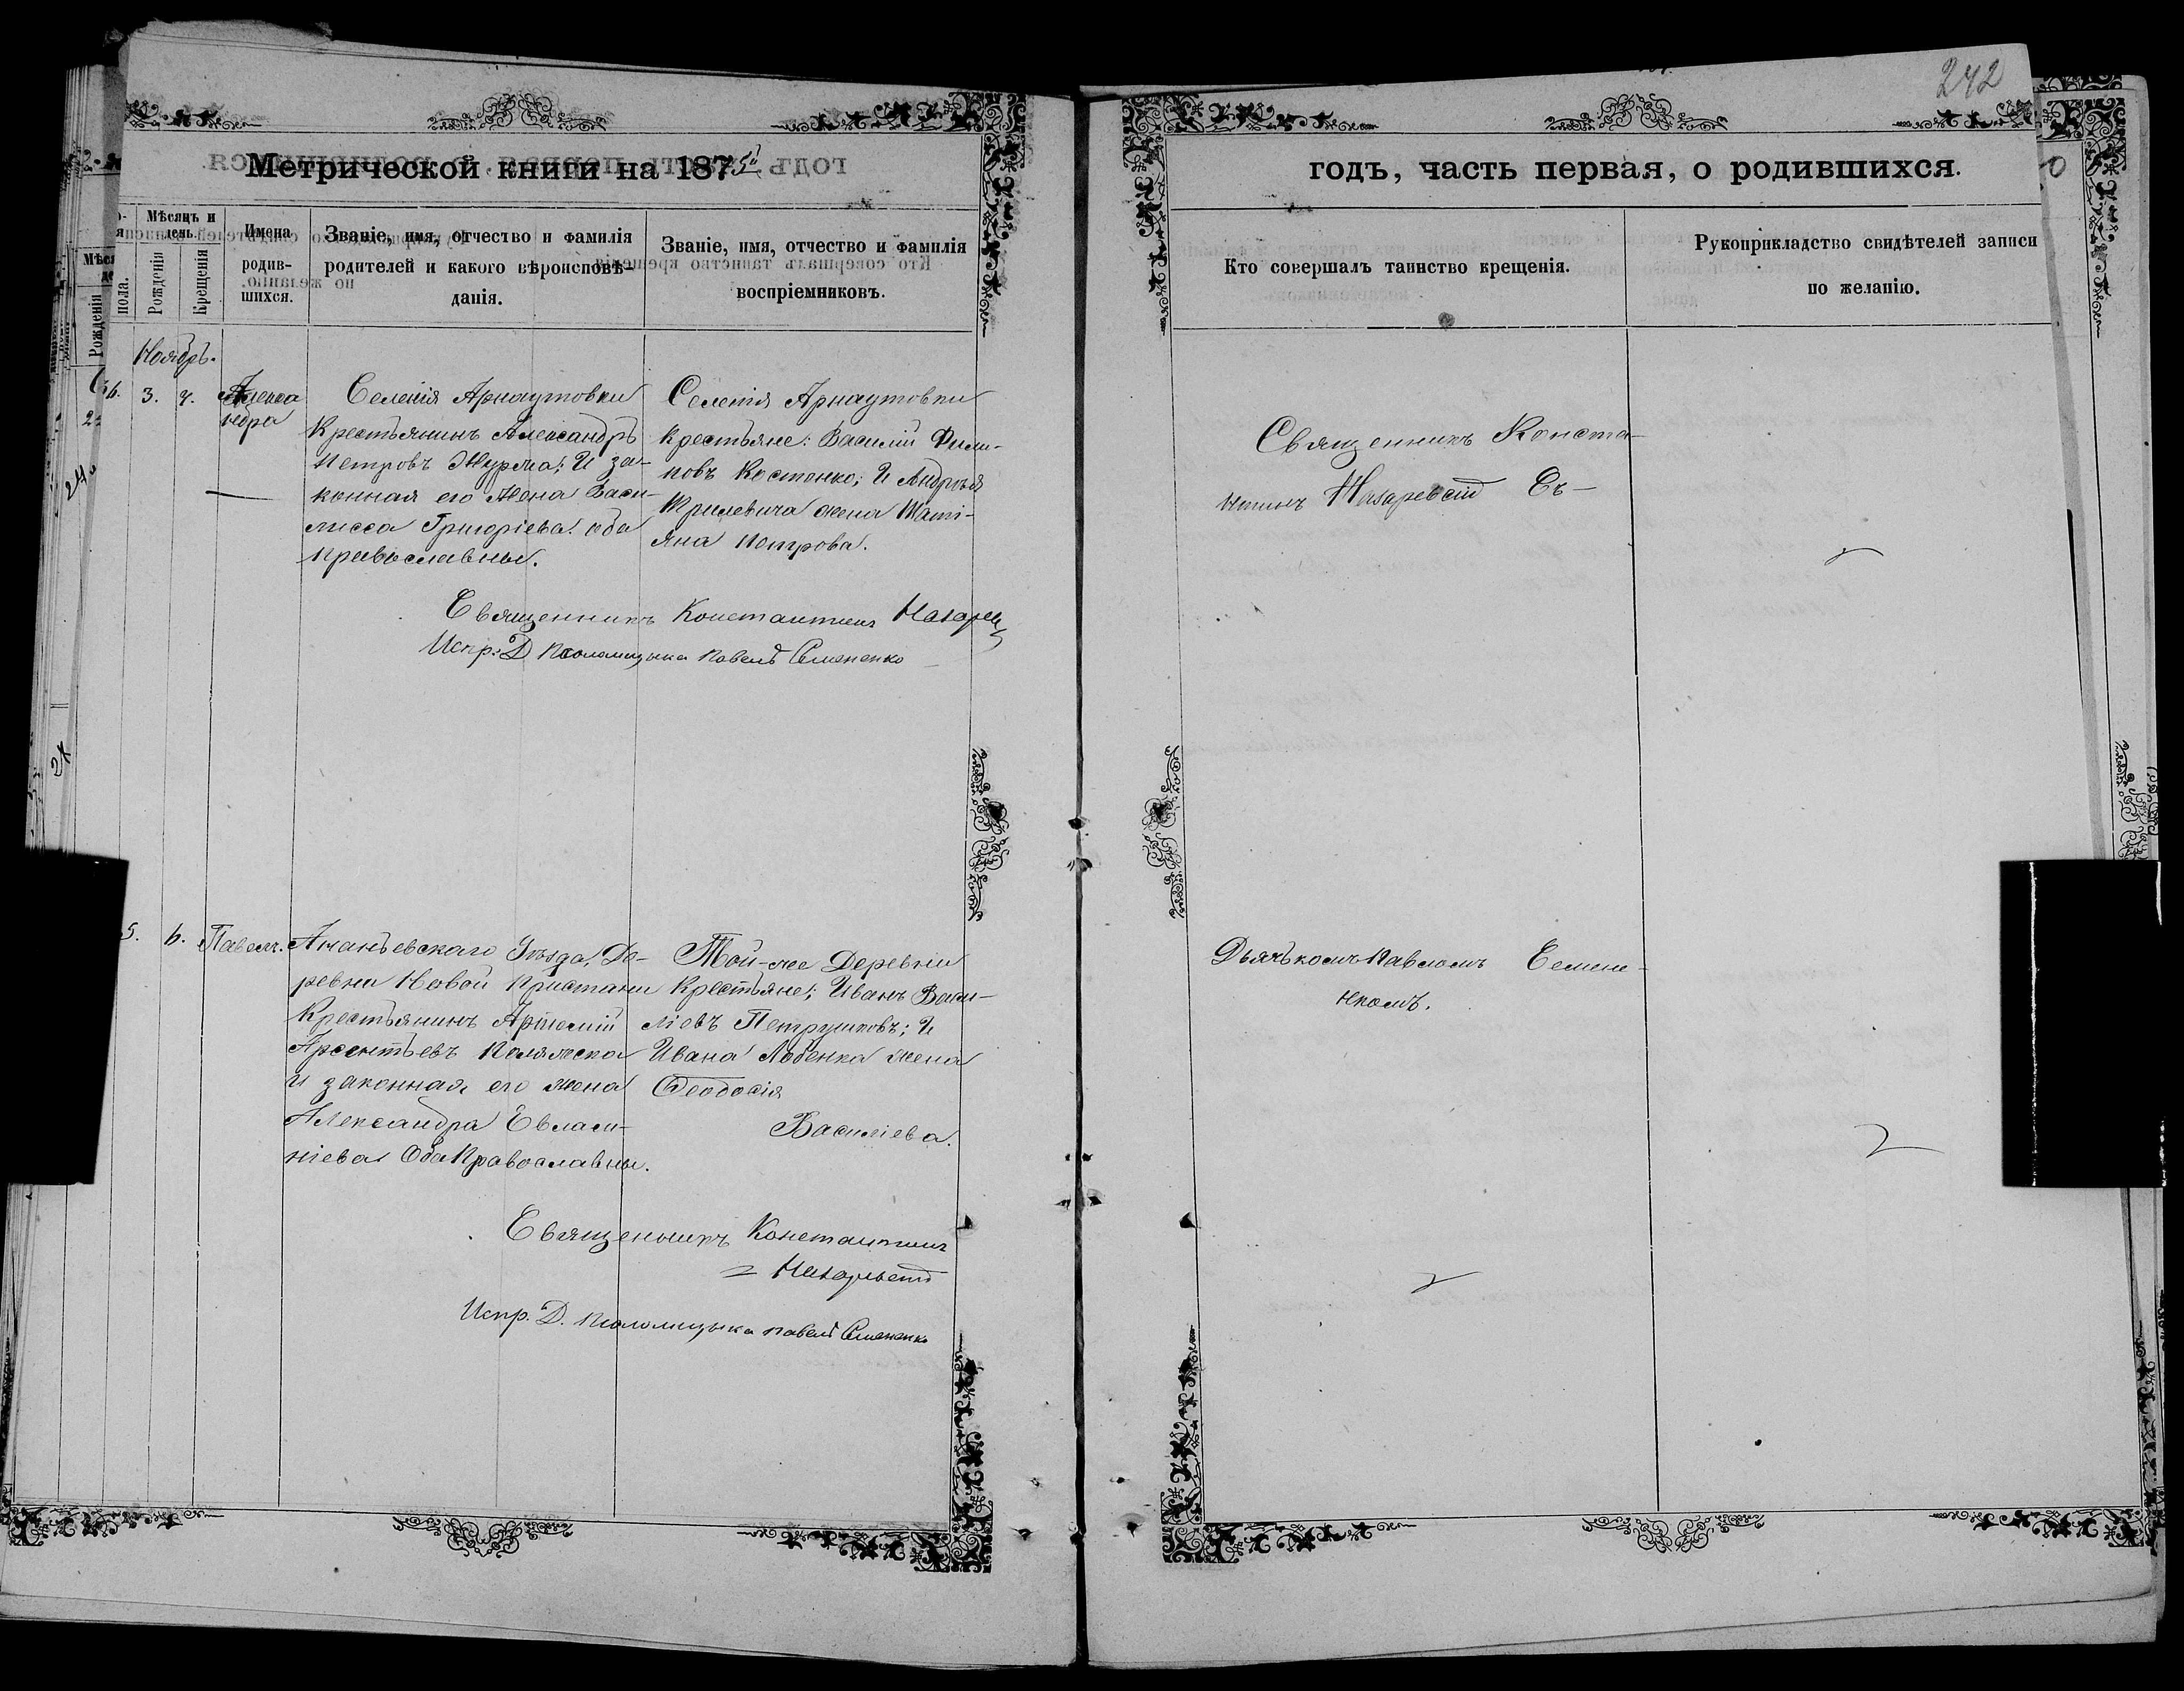 242
Метрической книги на 1875й
годъ, часть первая, о родившихся.
Мѣсяцъ и
день.
пола.
Рожденія
Крещенія
Имена
родив-
шихся.
Званіе, имя, отчество и фамилія
родителей и какого вѣроисповѣ-
данія.
Званіе, имя, отчество и фамилія
воспріемниковъ.
Кто совершалъ таинство крещенія.
Рукоприкладство свидѣтелей записи
по желанію.
Ноябрь.
3.
Алекса
ндра
Селенія Арнаутовки
Крестьянинъ Александръ
Петровъ Журма; И за-
конная его жена Васи-
лисса Григоріева. оба
православны.
Селенія Арнаутовки
Крестьяне: Василій Фили-
повъ Костенко; И Андрѣя
жена Таті-
яна Петрова.
Священникъ Конста-
нтинъ Назаревскій Съ-
Священникъ Константинъ
Испр: Д Псаломщика Павелъ Семененко
5.
6.
Павелъ.
Ананьевскаго Уѣзда, Де-
ревни Новой Пристани
Крестьянинъ Артемій
Арсентьевъ
и законная его жена
Александра Евлам-
піева Оба Православны.
Той-же Деревни
Крестьяне; Иванъ Васи-
ліевъ Петрушковъ; И
Ивана Лобенка жена
Ѳеодосія
Василіева.
Дьячькомъ Павломъ Семене-
нкомъ.
Священникъ Константинъ
Назаревскій
Испр. Д. Псаломщика Павелъ Семененко